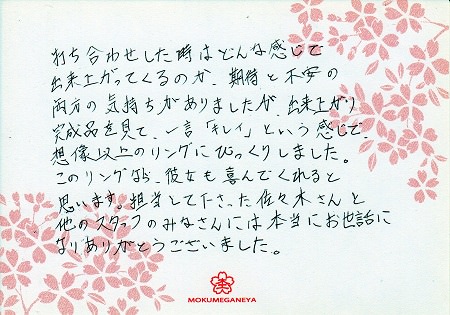 打ち合わせした時はどんな感じで
出来上がてくるのか、期待と不安の
両方の気持ちがありましたが、出来上がり
完成品を見て、一言「キレイ」という感じで、
想像以上のリングにびっくりしました。
このリングなら、彼女も喜んでくれると
思います。担当して下さった佐々木さんと
他のスタッフのみなさんには本当にお世話に
なりありがとうございました。
MOKUMEGANEYA